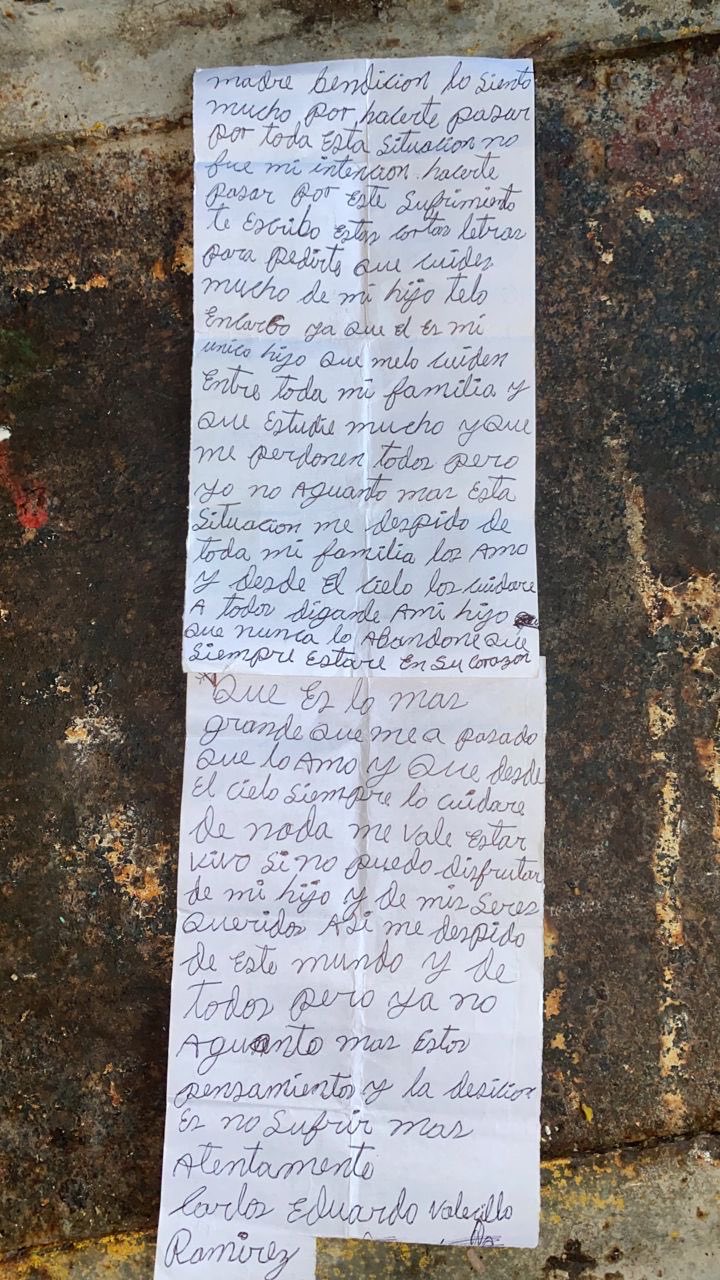 madre bendicion lo siento
mucho por hacerte pasar
por toda Esta Situacion no
fue mi intencion hacerte
pasar por Este Sufrimiento
te Escribo Estas cortas letras
para pedirte que cuides
mucho de mi hijo telo
Encargo ya que el Es mi
unico hijo que melo cuiden
Entre toda mi familia y
que Estudie mucho y que
me perdonen todos pero
yo no Aguanto mas Esta
Situacion me despido de
toda mi familia los Amo
y desde El cielo los cuidare
A todos digande Ami hijo
que nunca lo Abandone que
Siempre Estare En Su corazon
Que Es lo mas
grande que me a pasado
que lo Amo y Que desde
El cielo Siempre lo cuidare
De nada me vale Estar
vivo Si no puedo disfrutar
de mi hijo y de mis Seres
queridos Asi me despido
de Este mundo y de
todos pero ya no
Aguanto mas Estos
pensamientos y la desicion
Es no Sufrir mas
Atentamente
Carlos Eduardo Valecillo
Ramirez